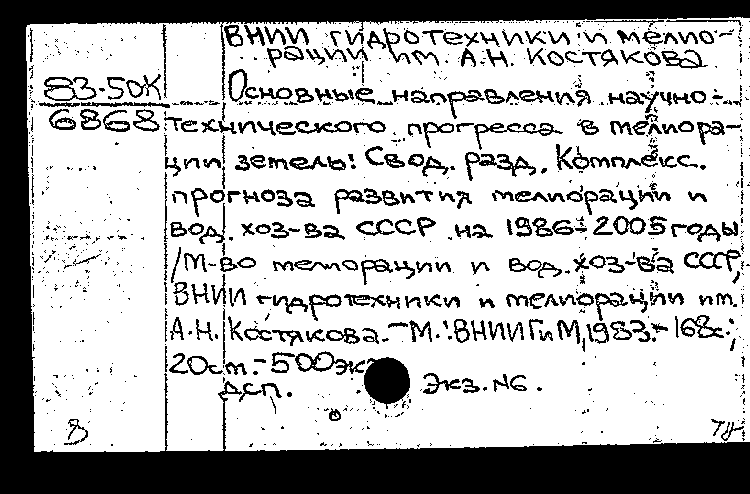 ВНИИ гидротехники и мелио-
рации им. А.Н. Костякова
83-50К
6868
Основные направления научно-
технического прогресса в мелиора-
ции земель: Свод. разд. Комплекс.
прогноза развития мелиорации и
вод. хоз-ва СССР на 1986-2005 годы
/М-во мелиорации и вод. хоз-ва СССР,
ВНИИ гидротехники и мелиорации им.
А.Н. Костякова. - М.: ВНИИГиМ, 1983. - 168с.;
20см. - 500экз
ДСП. Экз. №6.